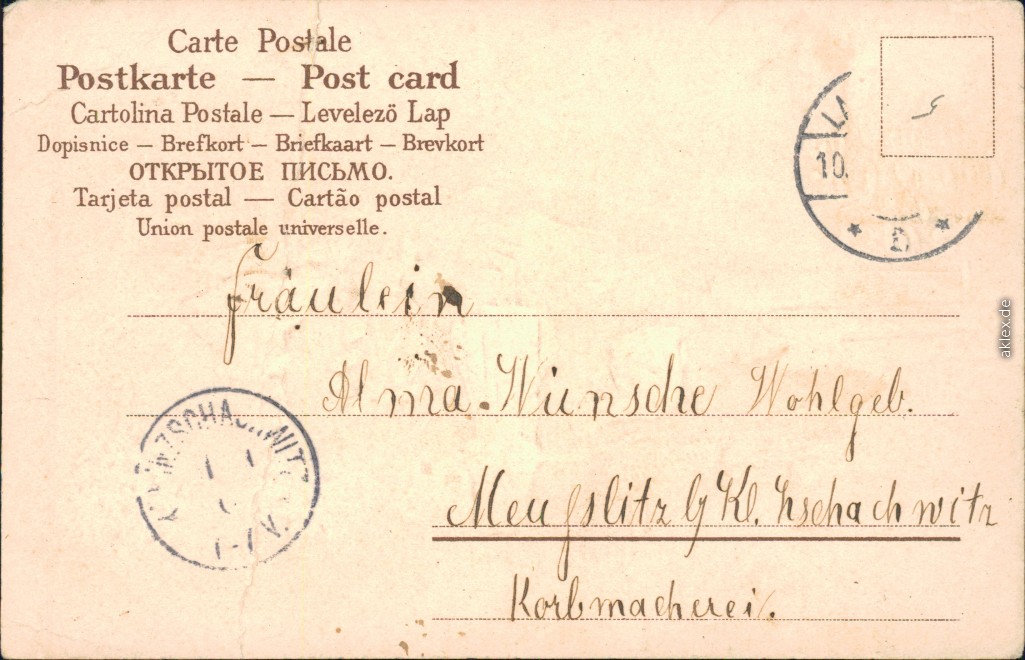 Carte Postale
Postkarte — Post card
Cartolina Postale — Levelező Lap
Dopisnice — Brefkort — Briefkaart — Brevkort
ОТКРЫТОЕ ПИСЬМО.
Tarjeta postal — Cartão postal
Union postale universelle.
10.
* D *
Fräulein
Alma Wünsche Wohlgeb.
ZSCHACHWITZ
Meußlitz b/ Kl. Zschachwitz
Korbmacherei.
aklex.de